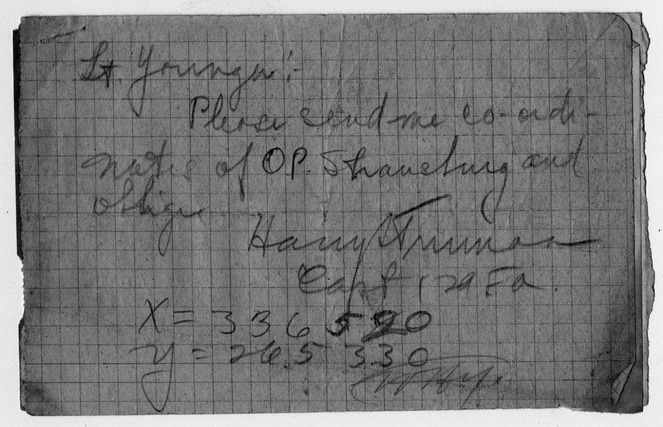 Lt. Younger:-
Please send me co-ordi-
nates of O.P. Strausburg and
oblige
Harry S Truman
Capt 129 F.A.
X = 336590
y = 265330